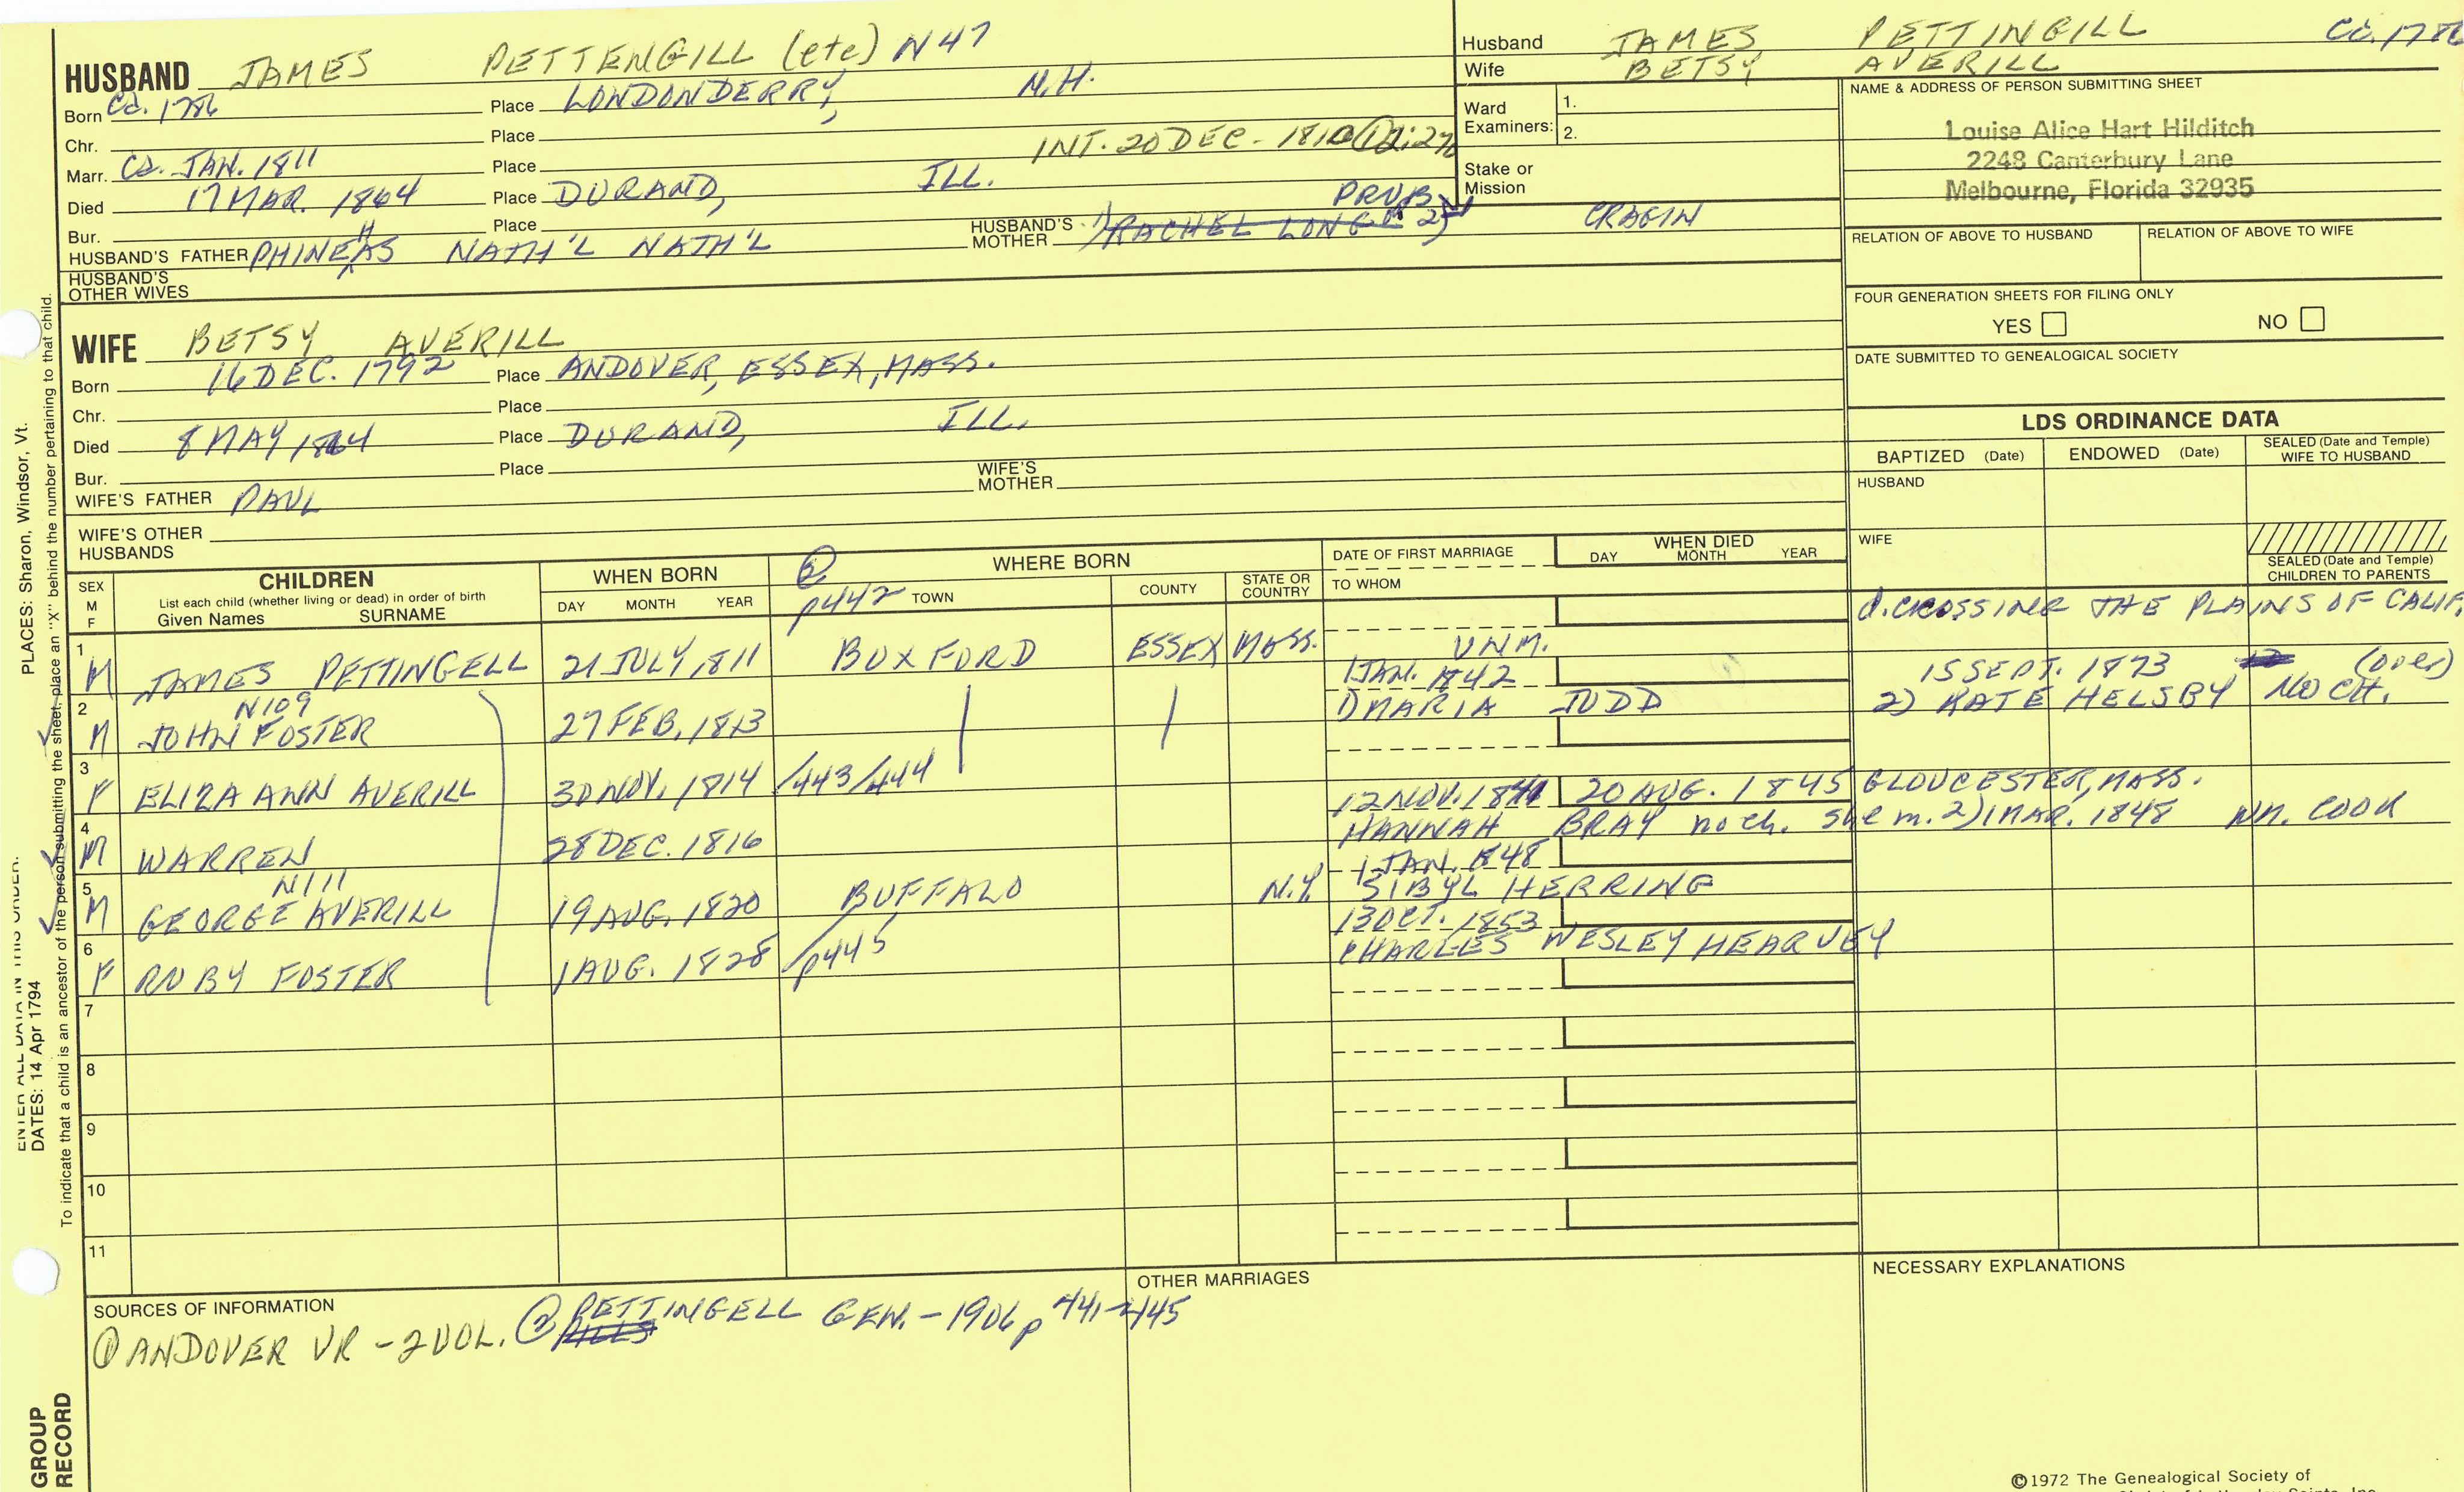 HUSBAND JAMES PETTENGILL (etc) N47
Born Ca. 1786 Place LONDONDERRY, N.H.
Chr. Place
Marr. Ca. JAN. 1811 Place INT. 20 DEC. - 1810
Died 17 MAR. 1864 Place DURAND, ILL.
Bur. Place
HUSBAND'S FATHER PHINEHAS NATH'L NATH'L HUSBAND'S MOTHER 1) RACHEL LONG 2) PROB. CRAGIN
HUSBAND'S OTHER WIVES
Husband JAMES PETTINGILL Ca. 1786
Wife BETSY AVERILL
Ward Examiners: 1.
2.
Stake or Mission
NAME & ADDRESS OF PERSON SUBMITTING SHEET
Louise Alice Hart Hilditch
2248 Canterbury Lane
Melbourne, Florida 32935
RELATION OF ABOVE TO HUSBAND RELATION OF ABOVE TO WIFE
FOUR GENERATION SHEETS FOR FILING ONLY
YES NO
DATE SUBMITTED TO GENEALOGICAL SOCIETY
WIFE BETSY AVERILL
Born 16 DEC. 1792 Place ANDOVER, ESSEX, MASS.
Chr. Place
Died 8 MAY 1864 Place DURAND, ILL.
Bur. Place
WIFE'S FATHER PAUL WIFE'S MOTHER
WIFE'S OTHER HUSBANDS
LDS ORDINANCE DATA
BAPTIZED (Date) ENDOWED (Date) SEALED (Date and Temple) WIFE TO HUSBAND
HUSBAND
WIFE
SEALED (Date and Temple) CHILDREN TO PARENTS
SEX M F
CHILDREN
List each child (whether living or dead) in order of birth
Given Names SURNAME
WHEN BORN
DAY MONTH YEAR
② p442
WHERE BORN
TOWN COUNTY STATE OR COUNTRY
DATE OF FIRST MARRIAGE
TO WHOM
WHEN DIED
DAY MONTH YEAR
1 M JAMES PETTINGELL 21 JULY, 1811 BUXFORD ESSEX MASS. UNM. d. CROSSING THE PLAINS OF CALIF.
2 M N109 JOHN FOSTER 27 FEB. 1813 1 JAN. 1842 1) MARIA JUDD 15 SEPT. 1873 (over) 2) KATE HELSBY NO CH.
3 F ELIZA ANN AVERILL 30 NOV. 1814 /443/444
4 M WARREN 28 DEC. 1816 12 NOV. 1841 20 AUG. 1845 GLOUCESTER, MASS.
HANNAH BRAY no ch. She m. 2) 1 MAR. 1848 WM. COOK
5 M N111 GEORGE AVERILL 19 AUG. 1820 BUFFALO N.Y. 1 JAN. 1848 SIBYL HERRING
6 F RUBY FOSTER 1 AUG. 1828 /p445 13 OCT. 1853 CHARLES WESLEY HEARVEY
7
8
9
10
11
SOURCES OF INFORMATION
① ANDOVER VR - 2 VOL. ② PETTINGELL GEN. - 1906 p 441-445
OTHER MARRIAGES
NECESSARY EXPLANATIONS
©1972 The Genealogical Society of
PLACES: Sharon, Windsor, Vt.
To indicate that a child is an ancestor of the person submitting the sheet, place an "X" behind the number pertaining to that child.
ENTER ALL DATA IN THIS ORDER:
DATES: 14 Apr 1794
GROUP RECORD